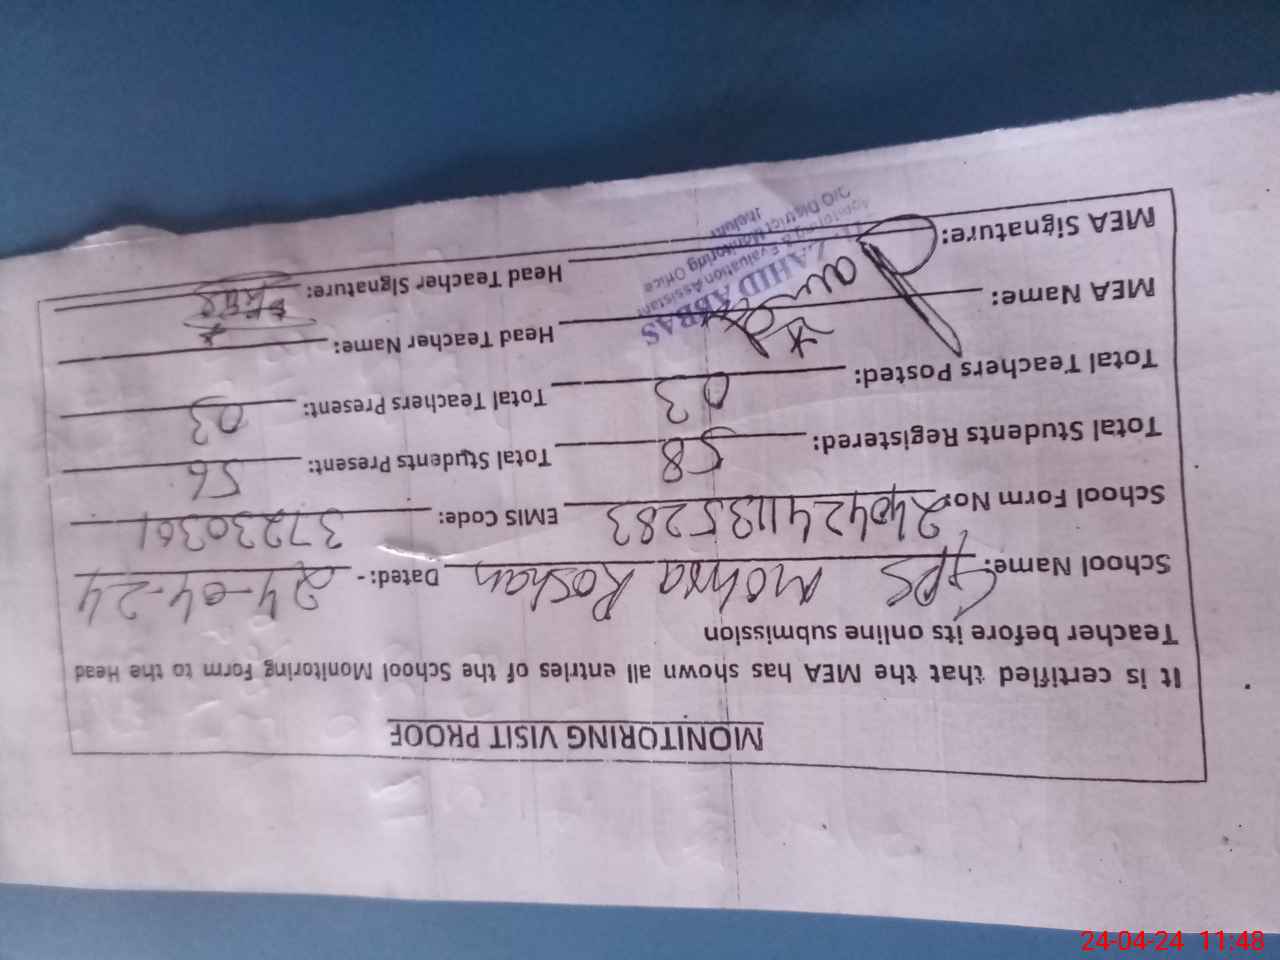 MONITORING VISIT PROOF
It is certified that the MEA has shown all entries of the School Monitoring Form to the Head
Teacher before its online submission
School Name: GPS Mohra Roshan Dated:- 24-04-24
School Form No. 2404241135283 EMIS Code: 37230301
Total Students Registered: 58 Total Students Present: 56
Total Teachers Posted: 03 Total Teachers Present: 03
MEA Name: Head Teacher Name:
MEA Signature: Head Teacher Signature:
ZAHID ABBAS
Monitoring & Evaluation Assistant
O/O District Monitoring Office
Jhelum
24-04-24 11:48